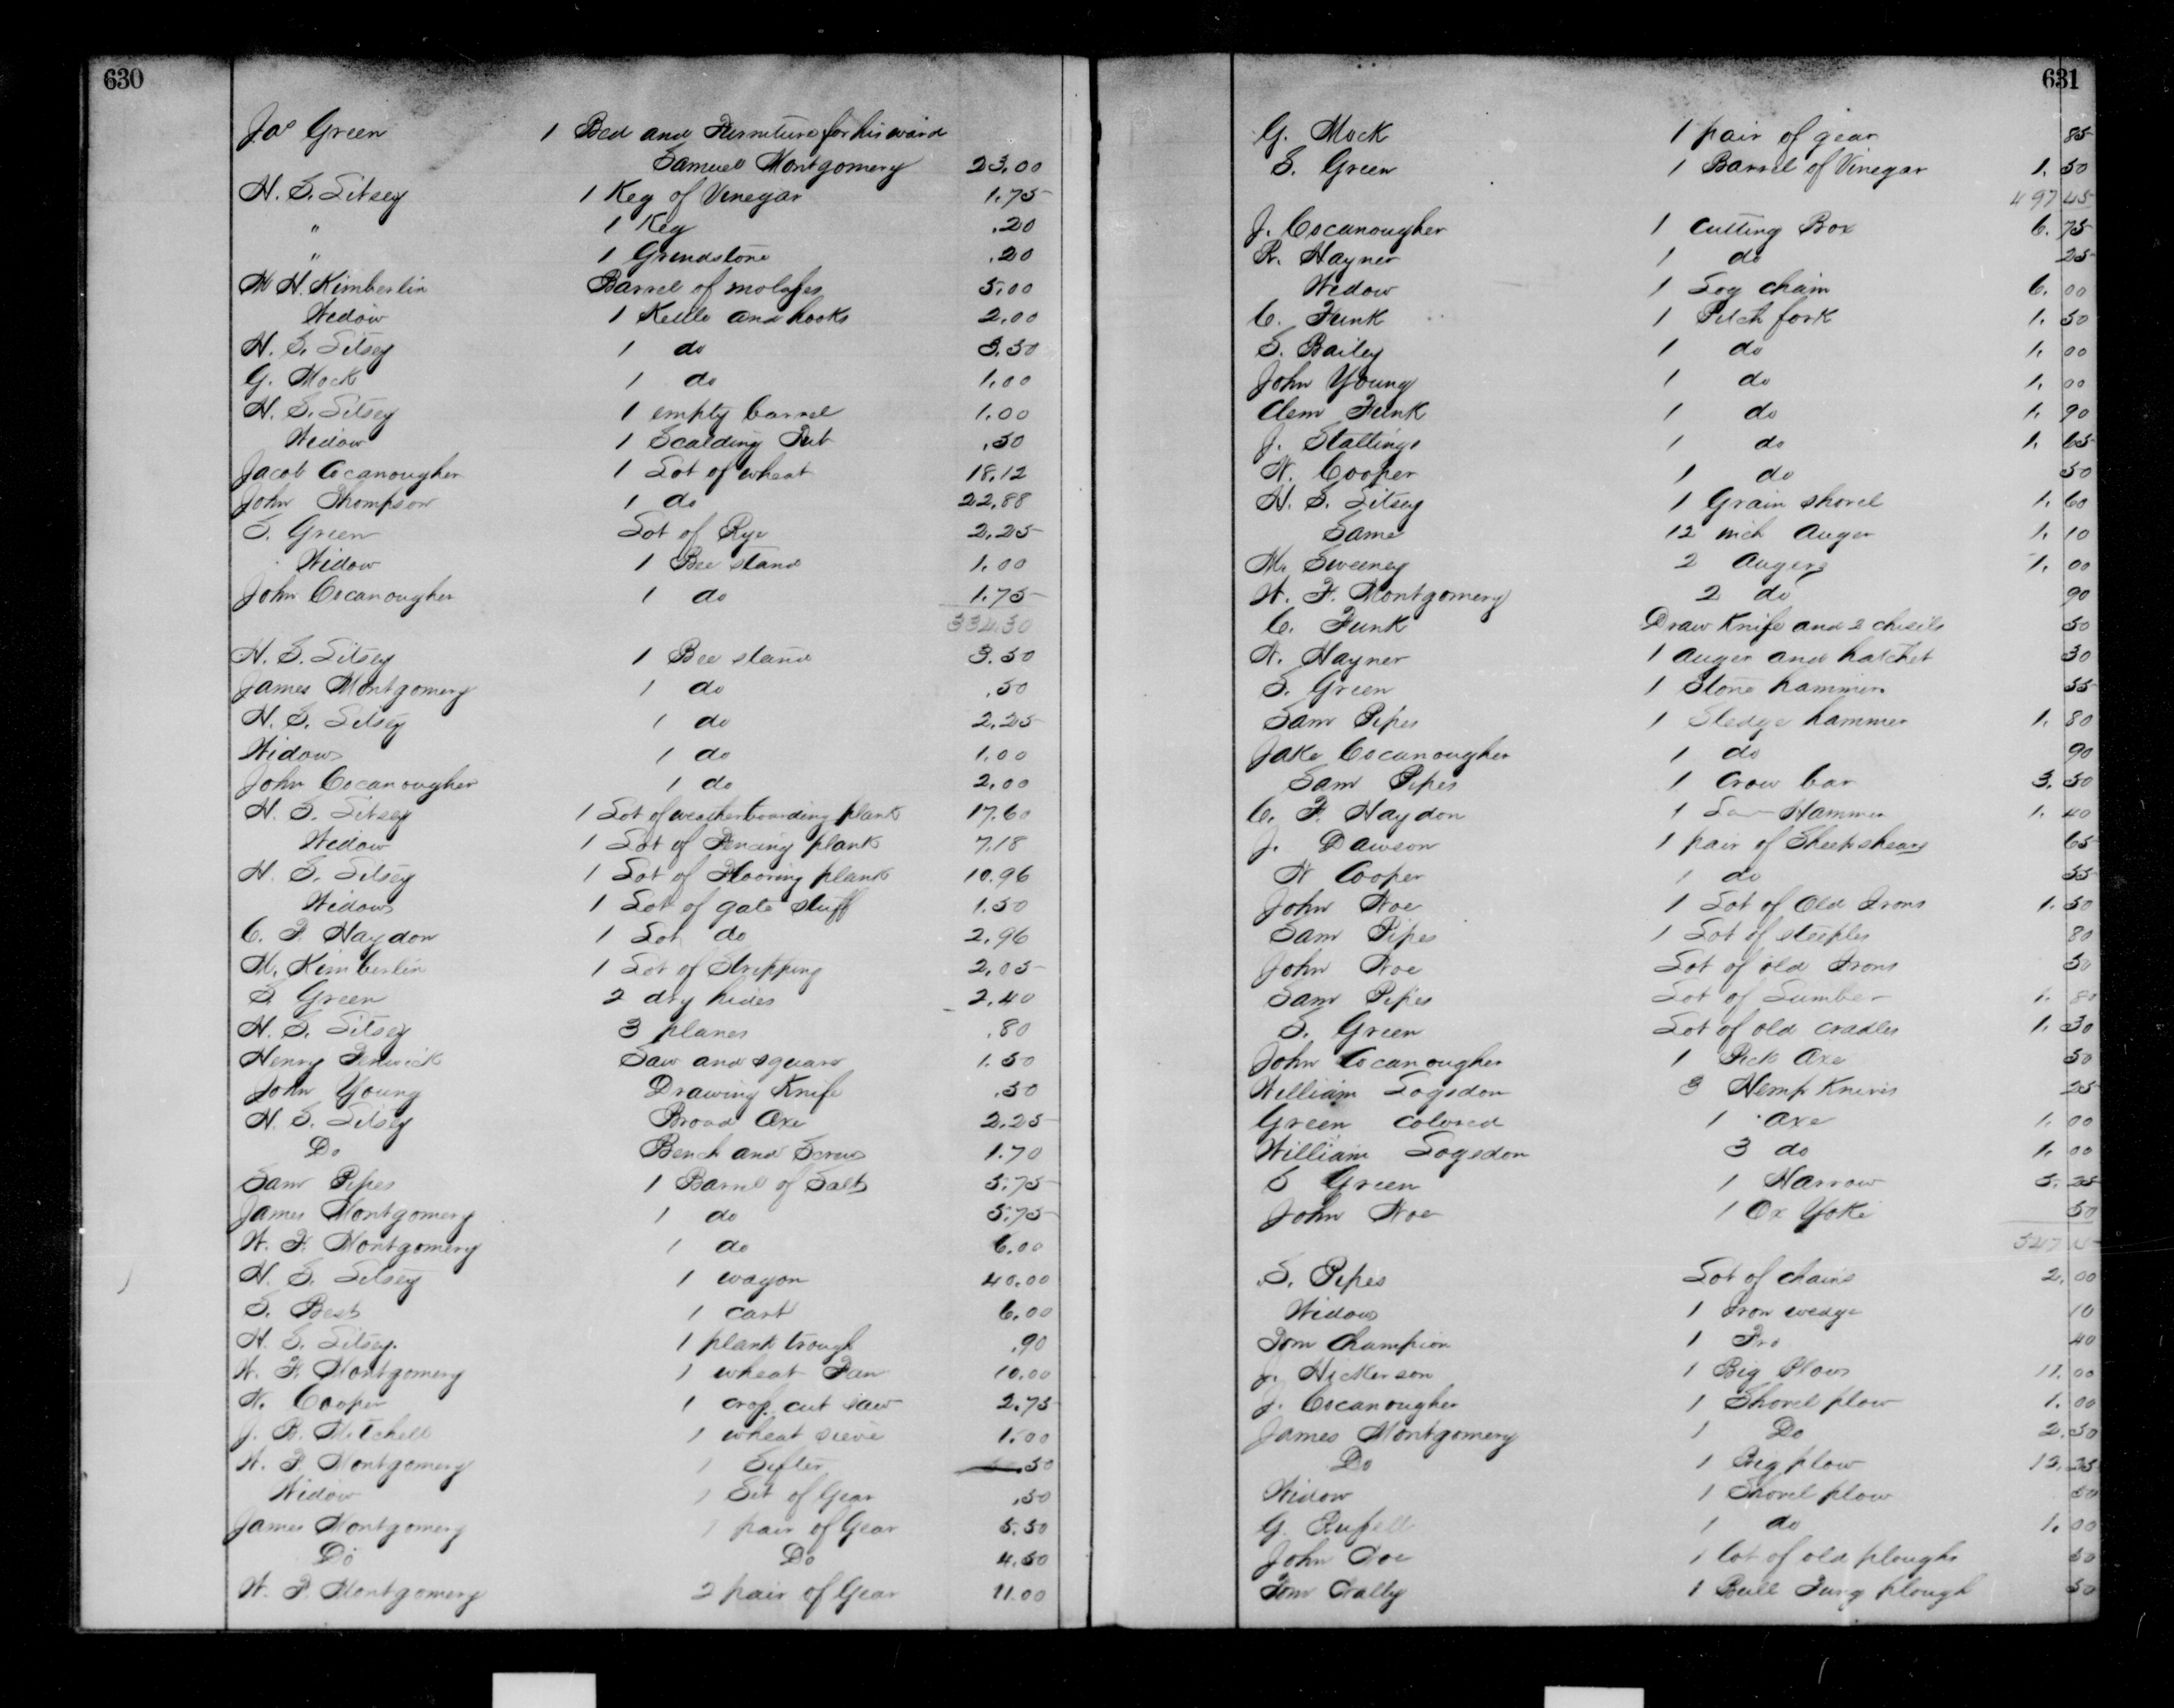 630
Jas Green 1 Bed and Furniture for his ward
Samuel Montgomery 23.00
H. S. Litsey 1 Keg of Vinegar 1.75
" 1 Keg .20
" 1 Grindstone .20
M H. Kimberlin Barrel of molasses 5.00
Widow 1 Kettle and hooks 2.00
H. S. Litsey 1 do 3.50
G. Mock 1 do 1.00
H. S. Litsey 1 empty barrel 1.00
Widow 1 Scalding Tub .50
Jacob Cocanougher 1 Lot of wheat 18.12
John Thompson 1 do 22.88
S. Green Lot of Rye 2.25
Widow 1 Bee stand 1.00
John Cocanougher 1 do 1.75
334.30
H. S. Litsey 1 Bee stand 3.50
James Montgomery 1 do .50
H. S. Litsey 1 do 2.25
Widow 1 do 1.00
John Cocanougher 1 do 2.00
H. S. Litsey 1 Lot of weatherboarding plank 17.60
Widow 1 Lot of Fencing plank 7.18
H. S. Litsey 1 Lot of Flooring plank 10.96
Widow 1 Lot of gate stuff 1.50
C. F. Haydon 1 Lot do 2.96
M. Kimberlin 1 Lot of Stripping 2.05
S. Green 2 dry hides 2.40
H. S. Litsey 3 planes .80
Henry Fenwick Saw and square 1.50
John Young Drawing Knife .50
H. S. Litsey Broad Axe 2.25
Do Bench and Screw 1.70
Sam Pipes 1 Barrel of Salt 5.75
James Montgomery 1 do 5.75
W. F. Montgomery 1 do 6.00
H. S. Litsey 1 wagon 40.00
S. Best 1 cart 6.00
H. S. Litsey. 1 plank trough .90
W. F. Montgomery 1 wheat Fan 10.00
W. Cooper 1 crop cut saw 2.75
J. B. Mitchell 1 wheat sieve 1.00
W. F. Montgomery 1 Sifter .50
Widow 1 Set of Gear .50
James Montgomery 1 pair of Gear 5.50
Do Do 4.50
W. F. Montgomery 2 pair of Gear 11.00
631
G. Mock 1 pair of gear 85
S. Green 1 Barrel of Vinegar 1.50
497 45
J. Cocanougher 1 Cutting Box 6.75
R. Hayner 1 do 25
Widow 1 Log chain 6.00
C. Funk 1 Pitch fork 1.50
S. Bailey 1 do 1.00
John Young 1 do 1.00
Clem Funk 1 do 1.90
J. Stallings 1 do 1.65
W. Cooper 1 do 50
H. S. Litsey 1 Grain shovel 1.60
Same 12 inch Auger 1.10
M. Sweeney 2 Augers 1.00
W. F. Montgomery 2 do 90
C. Funk Draw Knife and 2 chisels 50
W. Hayner 1 auger and hatchet 30
S. Green 1 Stone hammer 55
Sam Pipes 1 Sledge hammer 1.80
Jake Cocanougher 1 do 90
Sam Pipes 1 Crow bar 3.50
C. F. Haydon 1 Hammer 1.40
J. Dawson 1 pair of Sheep shears 65
W Cooper 1 do 55
John Noe 1 Lot of Old Irons 1.50
Sam Pipes 1 Lot of steeples 80
John Noe Lot of old Irons 50
Sam Pipes Lot of Lumber 1.80
S. Green Lot of old cradles 1.30
John Cocanougher 1 Pick Axe 50
William Logsdon 3 Hemp Knives 25
Green colored 1 Axe 1.00
William Logsdon 3 do 1.00
S Green 1 Harrow 5.25
John Noe 1 Ox Yoke 50
S. Pipes Lot of chains 2.00
Widow 1 Iron wedge 10
Tom Champion 1 Fro 40
J. Hickerson 1 Big Plow 11.00
J. Cocanougher 1 Shovel plow 1.00
James Montgomery 1 Do 2.50
Do 1 Big plow 13.25
Widow 1 Shovel plow 50
G. Russell 1 do 1.00
John Noe 1 lot of old ploughs 50
Tom 1 Bull Tung plough 50